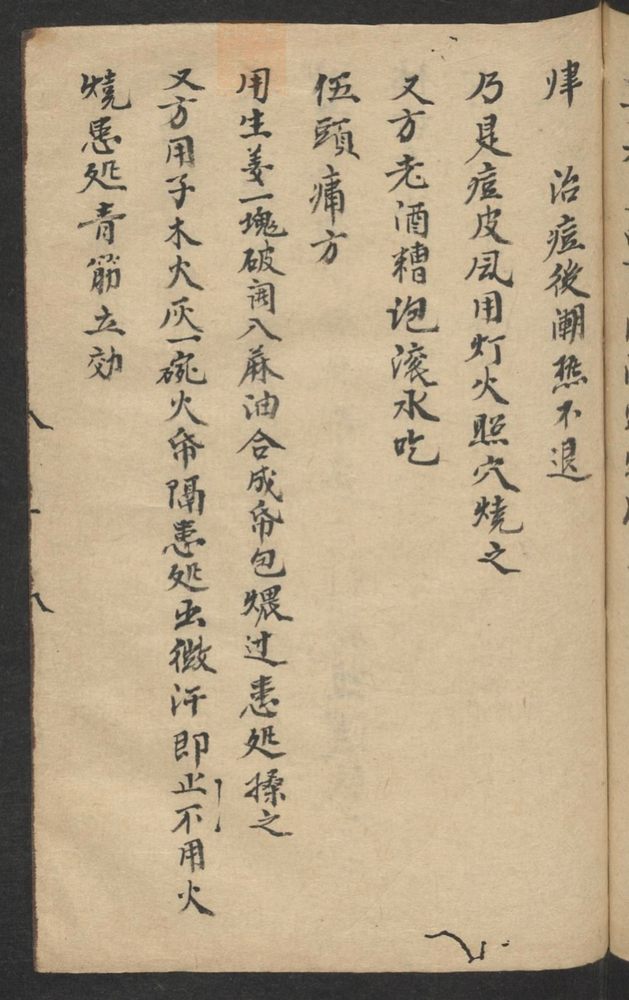 肂　治痘後潮热不退
乃是痘皮风用灯火照穴燒之
又方老酒糟泡滚水吃
伍頭痛方
用生姜一塊破開入蔴油合成帋包煨过患処搽之
又方用子木火灰一碗火帋隔患処出微汗即止不用火
燒患処青筋立効